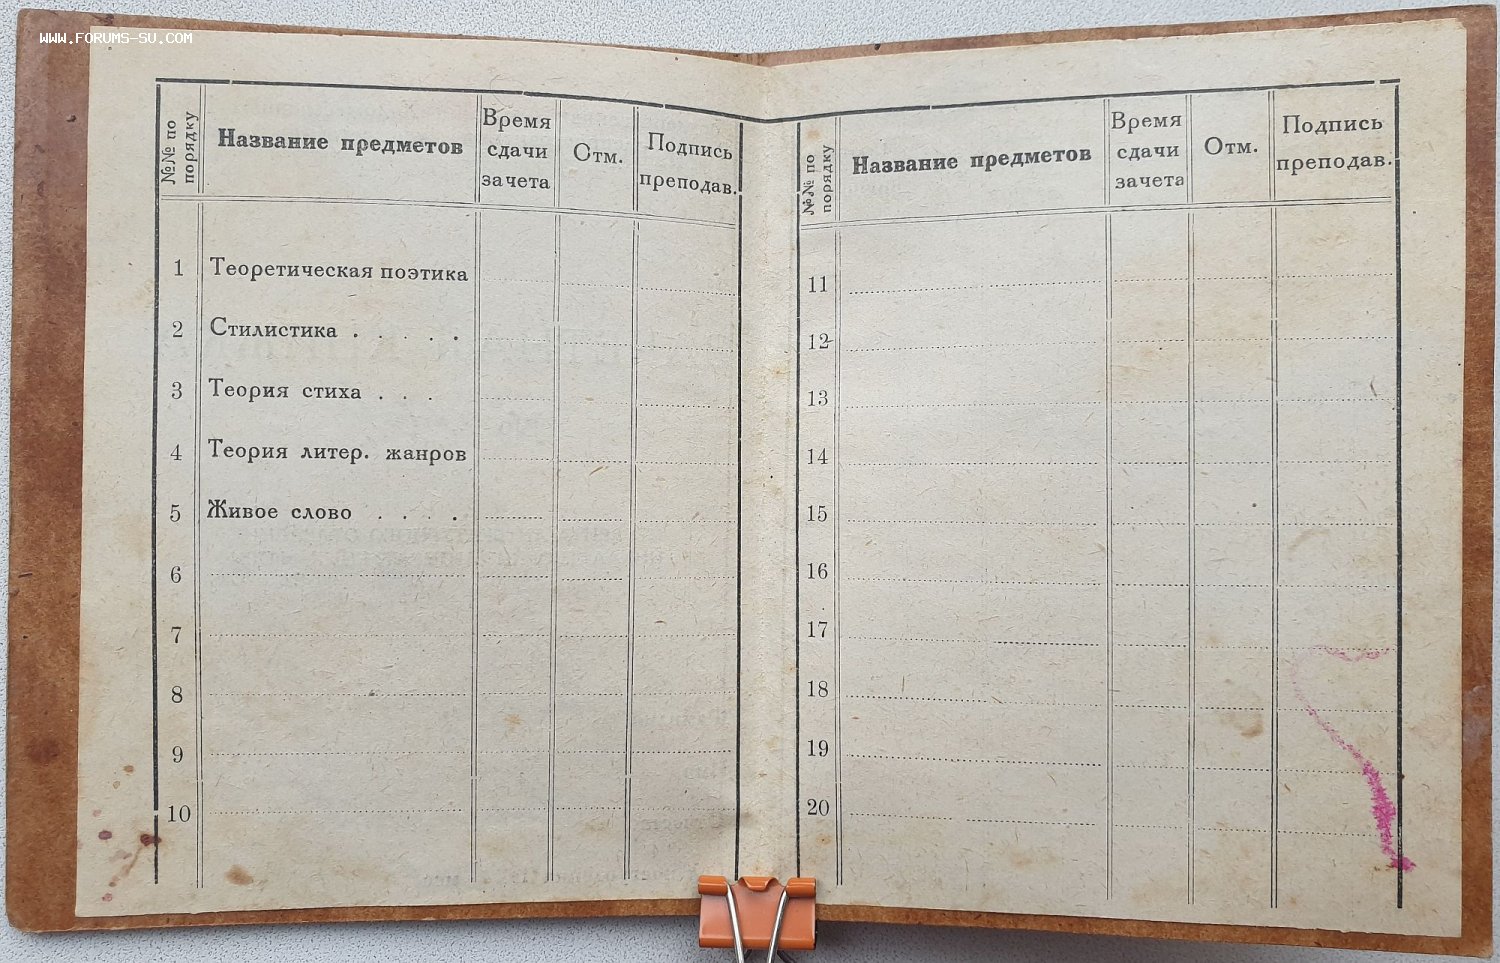 WWW.FORUMS-SU.COM
№№ по порядку
Название предметов
Время сдачи зачета
Отм.
Подпись преподав.
1 Теоретическая поэтика
2 Стилистика . . . . .
3 Теория стиха . . .
4 Теория литер. жанров
5 Живое слово . . . .
6
7
8
9
10
№№ по порядку
Название предметов
Время сдачи зачета
Отм.
Подпись преподав.
11
12
13
14
15
16
17
18
19
20